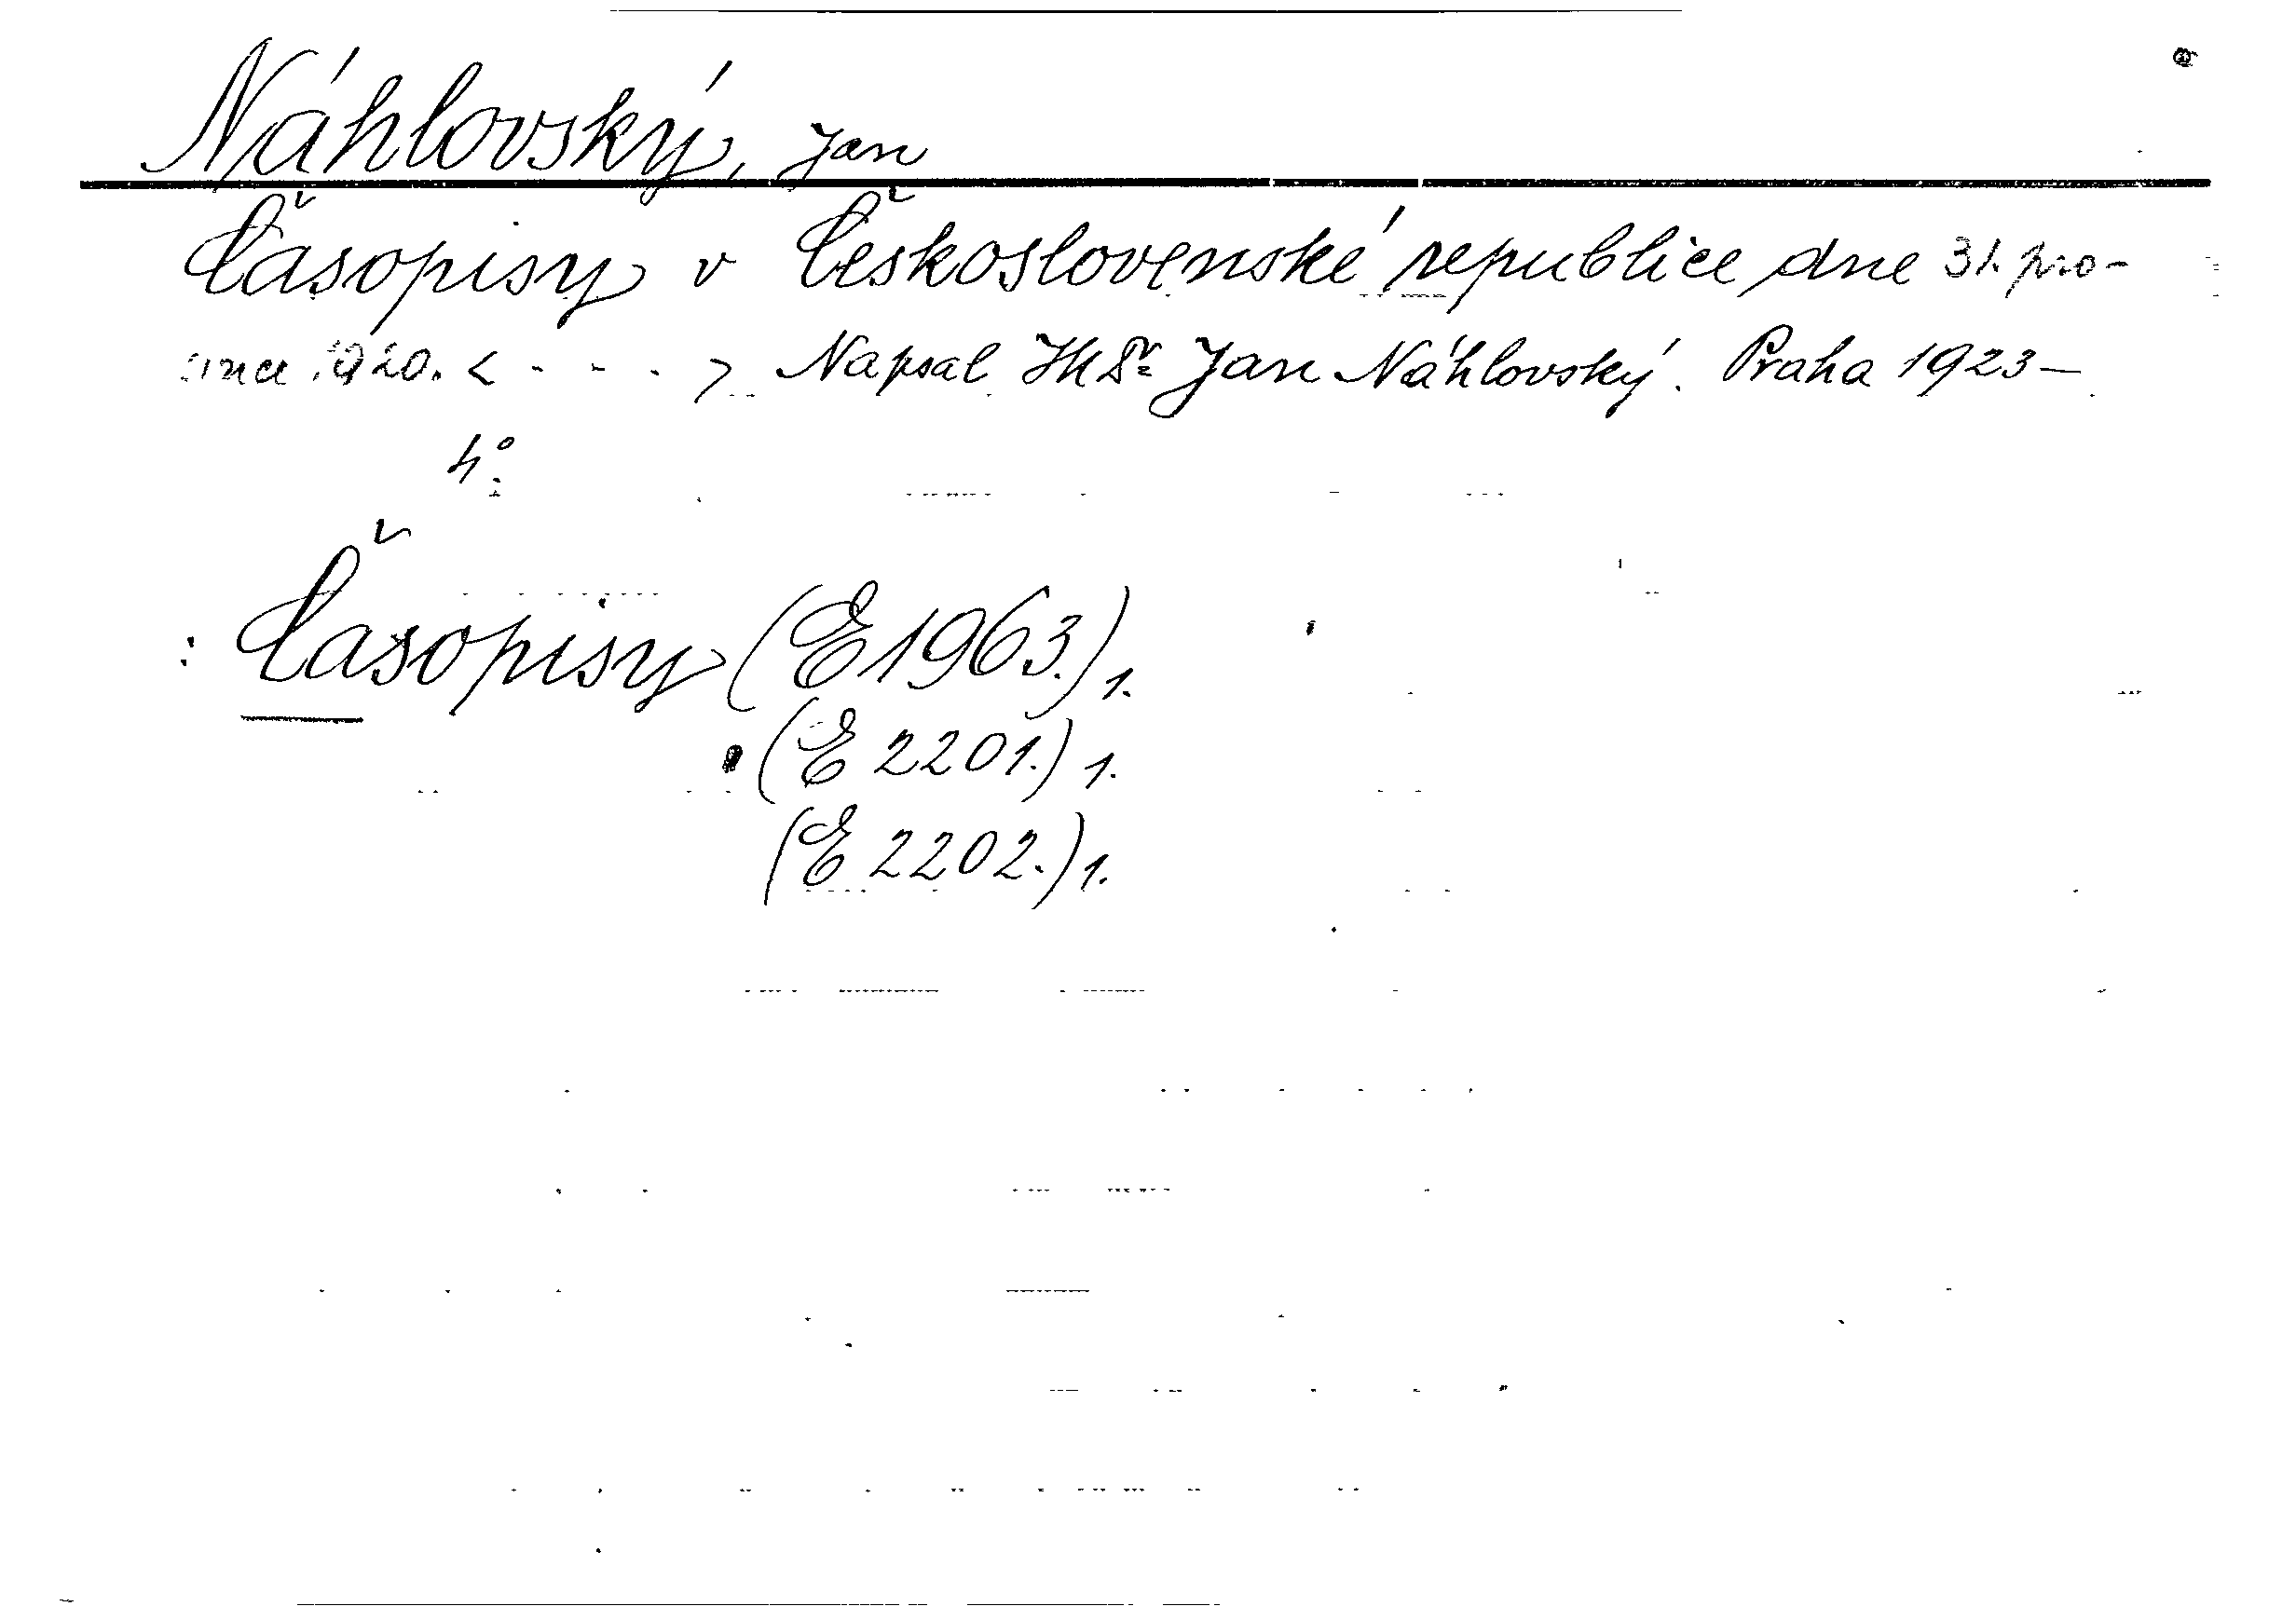 Náhlovský, Jan
Časopisy v Československé republice dne 31. pro-
since 1920. < - - - > Napsal JUDr Jan Náhlovský. Praha 1923—
4°.
: Časopisy (E 1963.) 1.
(E 2201.) 1.
(E 2202.) 1.